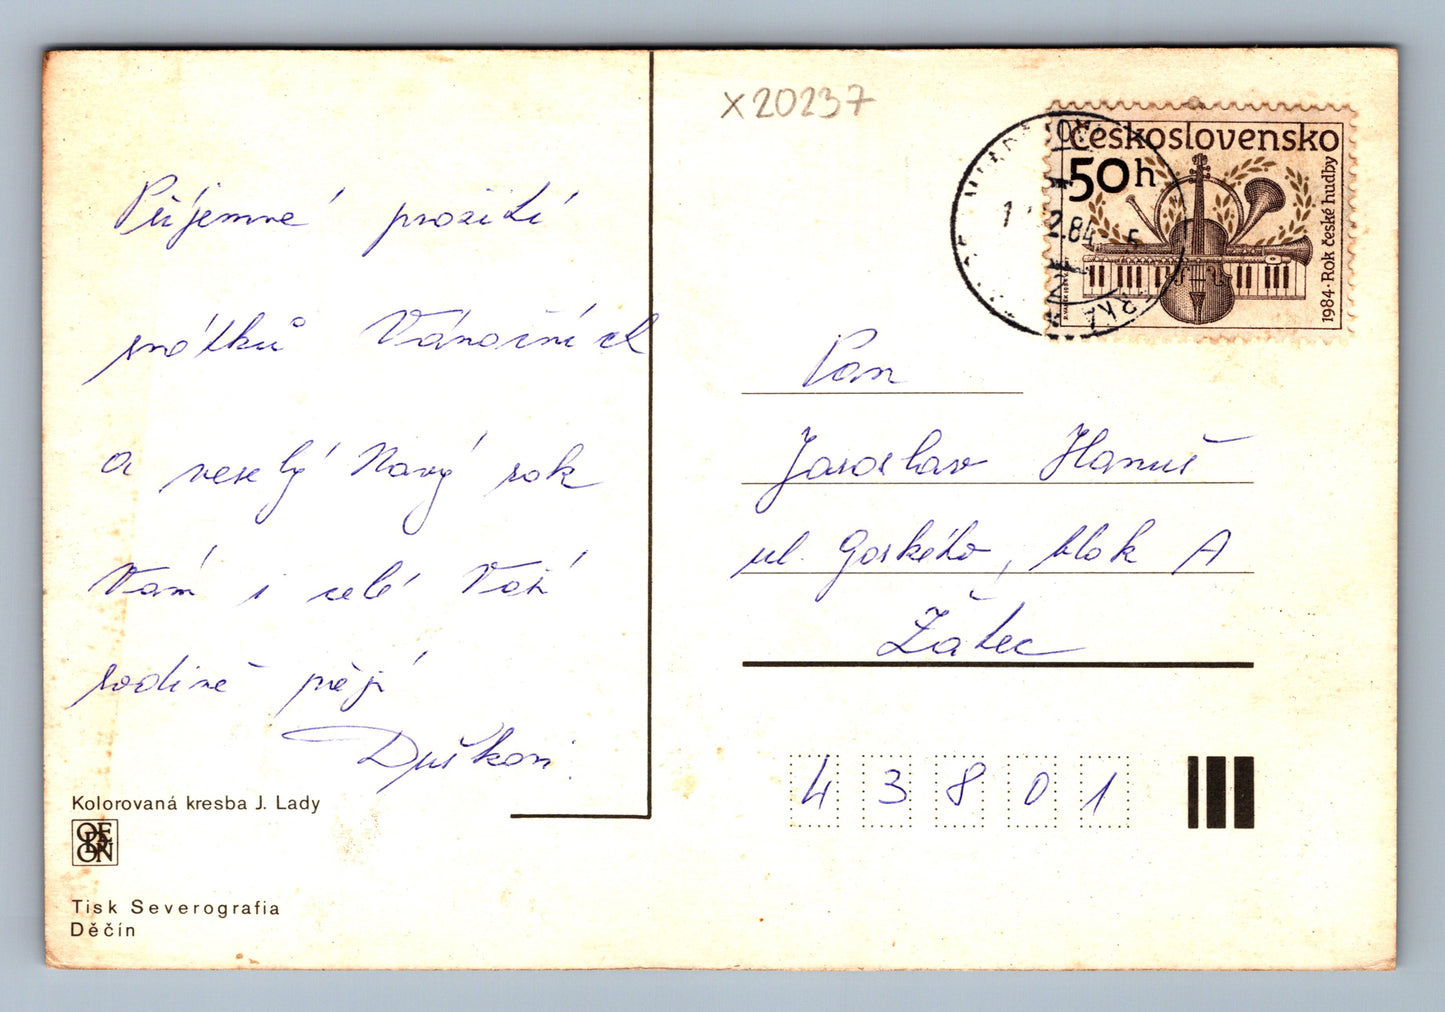 x20237
Příjemné prožití
svátků Vánočních
a veselý Nový rok
Vám i celé Vaší
rodině přejí
Duškovi.
Kolorovaná kresba J. Lady
ODEON
Tisk Severografia
Děčín
Československo
50h
1984 · Rok české hudby
2.84
5
Pan
Jaroslav Hanuš
ul. Gorkého, blok A
Žatec
43801